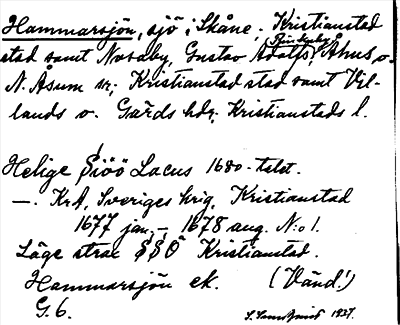 Hammarsjön, sjö i Skåne; Kristianstad
stad samt Nosaby, Gustav Adolfs, Rinkaby, Åhus o.
N. Åsum sn; Kristianstad stad samt Vil-
lands o. Gärds hdr; Kristianstads l.
Helige Siöö Lacus 1680-talet.
—. KrA, Sveriges krig, Kristianstad
1677 jan. – 1678 aug. N:o 1.
Läge strax SSÖ Kristianstad.
Hammarsjön ek. (Vänd!)
G. 6.
1927.